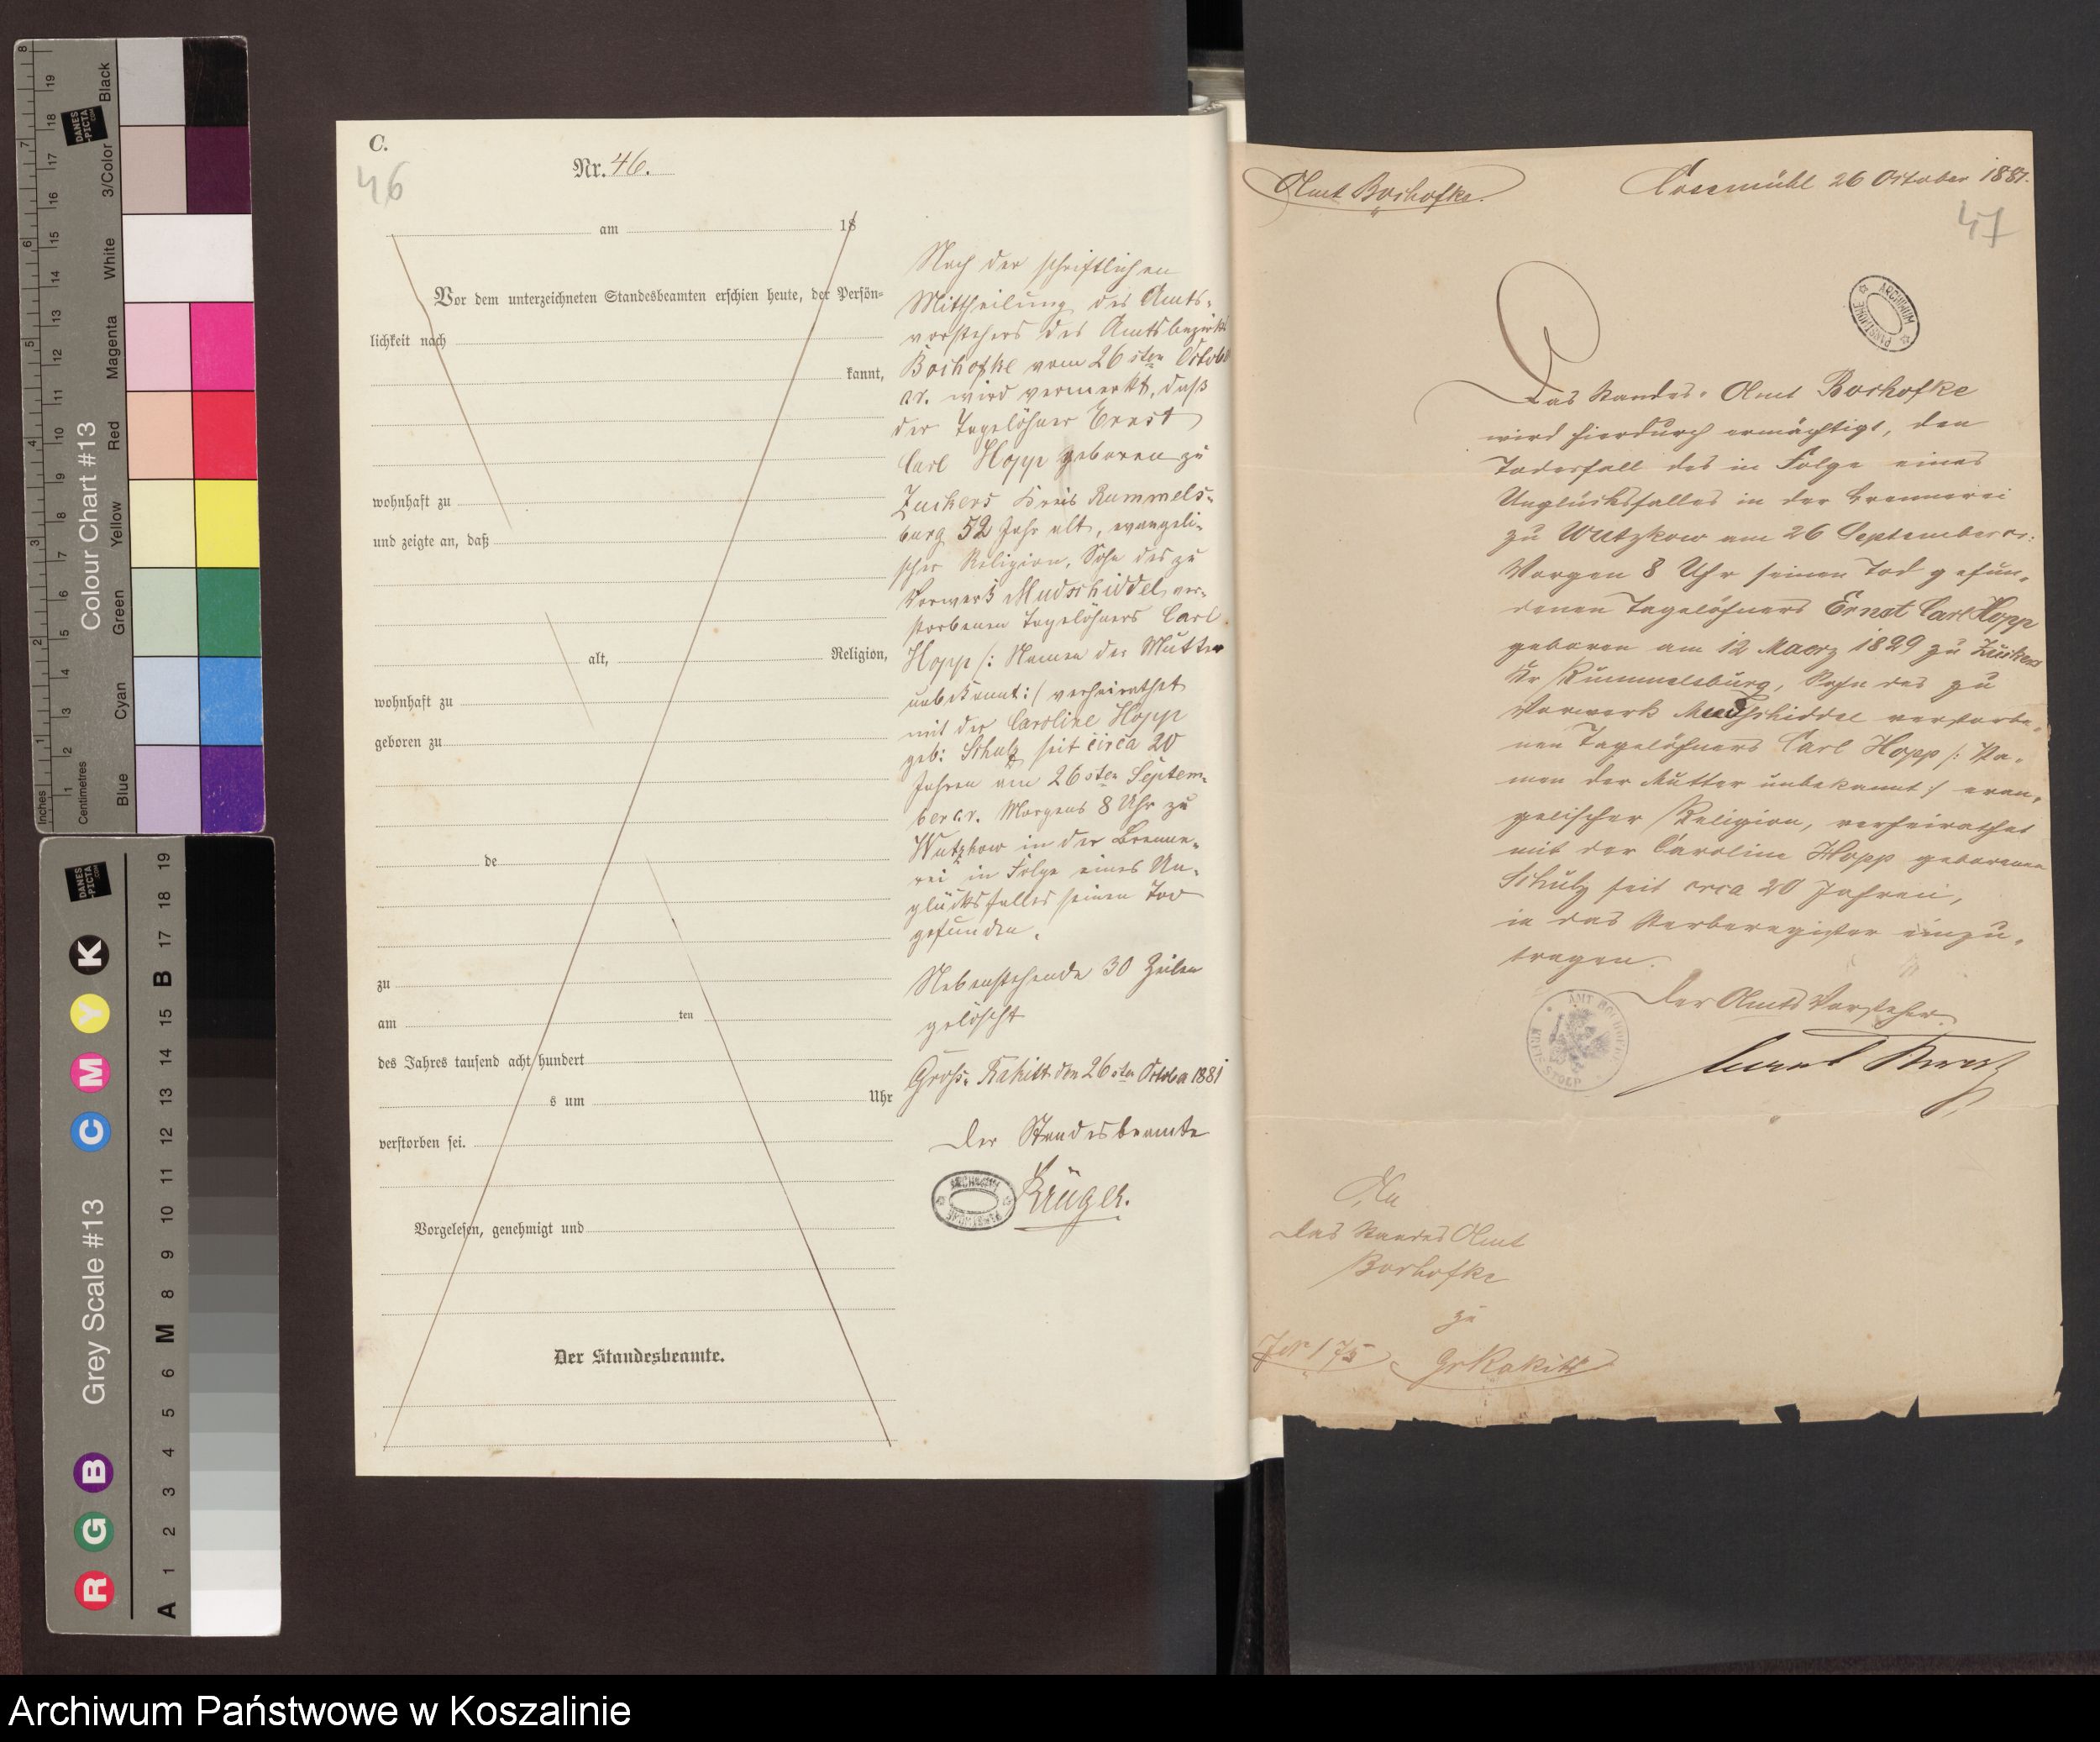 C.
46
Nr. 46.
am 18
Vor dem unterzeichneten Standesbeamten erschien heute, der Persön-
lichkeit nach
kannt,
wohnhaft zu
und zeigte an, daß
alt, Religion,
wohnhaft zu
geboren zu
de
zu
am ten
des Jahres tausend acht hundert
s um Uhr
verstorben sei.
Vorgelesen, genehmigt und
Der Standesbeamte.
Nach der schriftlichen
Mittheilung des Amts-
vorstehers des Amtsbezirks
Bochofke vom 26sten Octob
cr. wird vermerkt, daß
der Tagelöhner Ernst
Carl Hopp geboren zu
Zuckers Kreis Rummels-
burg 52 Jahr alt, evangeli-
scher Religion, Sohn des zu
Vorwerk Mudschiddel ver-
storbenen Tagelöhners Carl
Hopp /: Namen der Mutter
unbekannt :/ verheirathet
mit der Caroline Hopp
geb: Schulz seit circa 20
Jahren am 26sten Septem-
ber cr. Morgens 8 Uhr zu
Wutzkow in der Brenne-
rei in Folge eines Un-
glücksfalles seinen Tod
gefunden.
Nebenstehende 30 Zeilen
gelöscht
Groß-Rakitt den 26sten October 1881
Der Standesbeamte
Krüger.
ARCHIWUM PAŃSTWOWE
Amt Bochofke.
26 October 1881.
47
ARCHIWUM PAŃSTWOWE
Das Standes-Amt Bochofke
wird hierdurch ermächtigt, den
Todesfall des in Folge eines
Unglücksfalles in der Brennerei
zu Wutzkow am 26 September cr.
Morgen 8 Uhr seinen Tod gefun-
denen Tagelöhners Ernst Carl Hopp
geboren am 12 Maerz 1829 zu Zuckers
Kr Rummelsburg, Sohn des zu
Vorwerk Mudschiddel verstorbe-
nen Tagelöhners Carl Hopp /: Na-
men der Mutter unbekannt :/ evan-
gelischer Religion, verheirathet
mit der Caroline Hopp geborenen
Schulz seit circa 20 Jahren,
in das Sterberegister einzu-
tragen.
Der Amts Vorsteher.
AMT BOCHOFKE KREIS STOLP
An
das Standes Amt
Bochofke
zu
Gr Rakitt
J№ 175
8 19 18 7 17 16 6 15 14 5 13 12 11 4 10 9 3 8 7 6 2 5 4 1 3 2 1
Inches
Centimetres
DANES-PICTA.COM
Colour Chart #13
Black
3/Color
White
Magenta
Red
Yellow
Green
Cyan
Blue
DANES-PICTA.COM
Grey Scale #13
R G B C M Y K
A 1 2 3 4 5 6 M 8 9 10 11 12 13 14 15 B 17 18 19
Archiwum Państwowe w Koszalinie